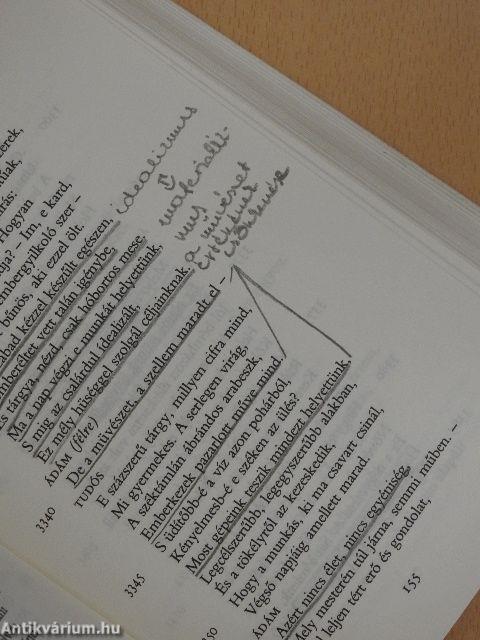 erek,
Hogyan
Im, e kard,
embergyilkoló szer –
bűnös, aki ezzel ölt.
kézzel készült egészen,
emberéltet vett talán igénybe,
tárgya, nézd, csak hóbortos mese.
Ma a nap végzi e munkát helyettünk,
S míg az csalárdul idealizált,
Ez mély hűséggel szolgál céljainknak.
ÁDÁM (félre)
De a művészet, a szellem maradt el –
TUDÓS
3340
E százszerű tárgy, millyen cifra mind,
Mi gyermekes. A serlegen virág,
A széktámlán ábrándos arabeszk,
Emberkezek pazarlott műve mind.
S üdítőbb-é a víz azon pohárból,
3345
Kényelmesb-é e széken az ülés?
Most gépeink teszik mindezt helyettünk,
Legcélszerűbb, legegyszerűbb alakban,
És a tökélyről az kezeskedik,
Hogy a munkás, ki ma csavart csinál,
Végső napjáig amellett marad.
ÁDÁM
Azért nincs élet, nincs egyéniség
Mely mesterén túl járna, semmi műben. –
leljen tért erő és gondolat,
155
idealizmus
materializ-
mus
a művészet
értékének
csökkenése
Antikvárium.hu